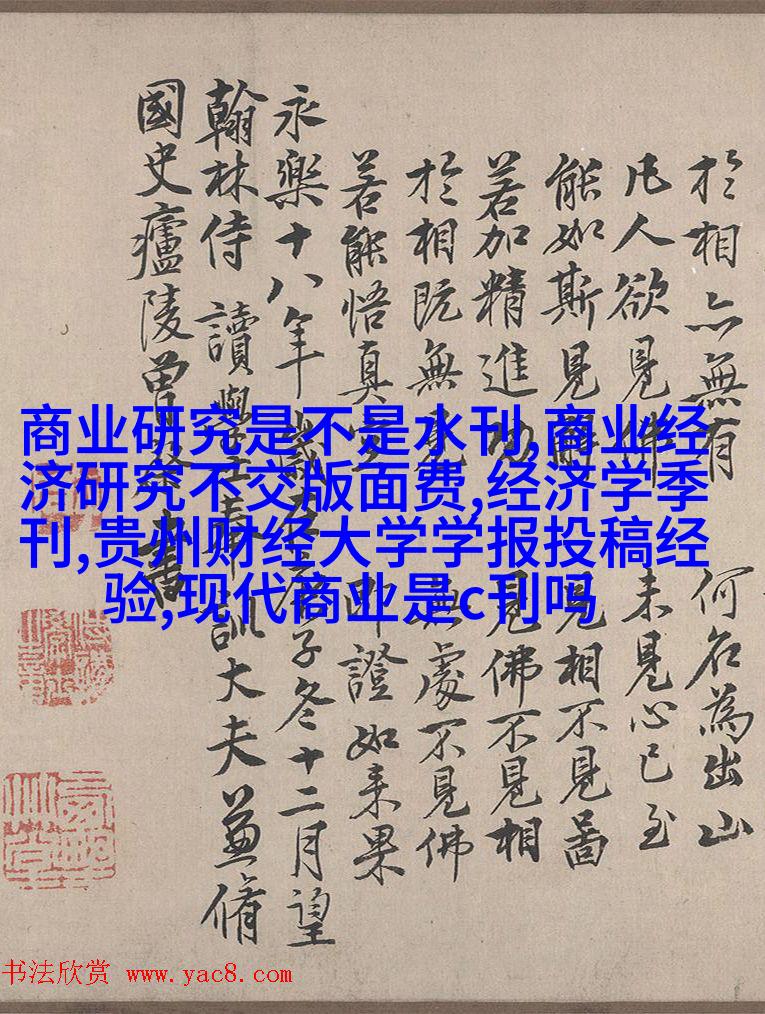 於相亦無有 何名為出山
凡人欲見佛 未見心已至
能如斯見解 見相不見啚
若加精進 見佛不見相
於相既無見 無處不見佛
若能悟真 即證如来果
永樂十八年歲子冬十二月望
翰林侍讀學士奉訓大夫兼脩
國史廬陵曾棨書
商业研究是不是水刊,商业经
济研究不交版面费,经济学季
刊,贵州财经大学学报投稿经
验,现代商业是c刊吗
书法欣赏 www.yac8.com